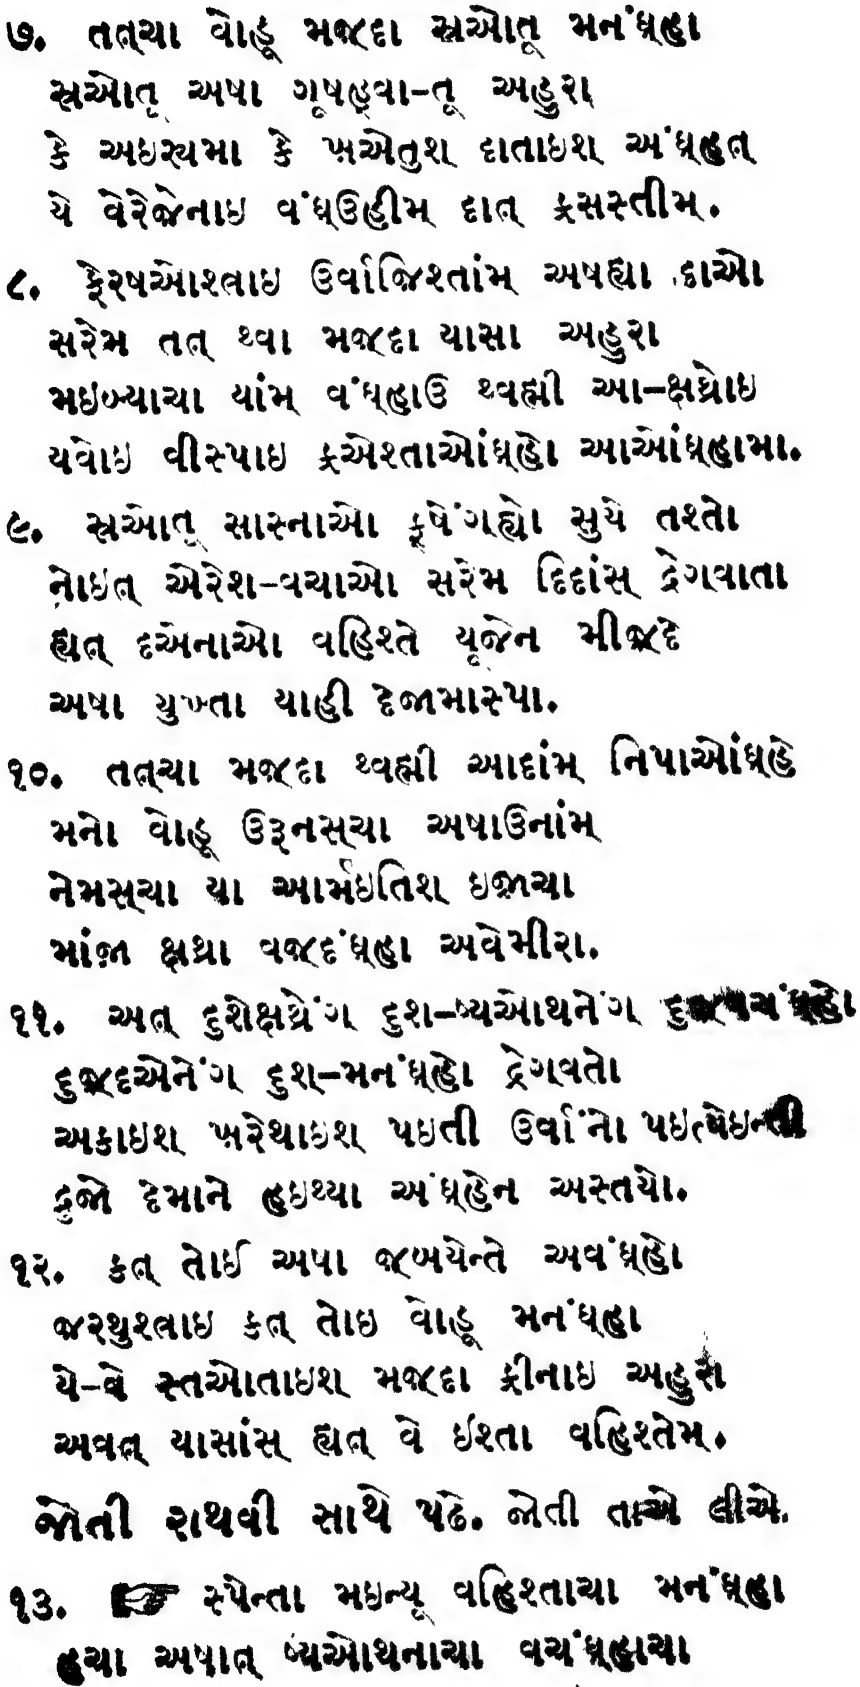 ૭. તત્ચા વોહૂ મજદા સ્રઓતૂ મનંઘ્હા
સ્રઓતૂ અષા ગૂષહ્વા-તૂ અહુરા
કે અઇરયમા કે ખ઼એતુશ દાતાઇશ અંઘ્હત્
યે વેરેજેનાઇ વંઘ્ઉહીમ્ દાત્ ફ્રસસ્તીમ્.
૮. ફેરષઓશ્ત્રાઇ ઉર્વાજિશ્તાંમ્ અષહ્યા દાઓ
સરેમ તત્ થ્વા મજદા યાસા અહુરા
મઇબ્યાચા યાંમ્ વંઘ્હાઉ થ્વહ્મી આ-ક્ષથ્રોઇ
યવોઇ વીસ્પાઇ ફ્રએશ્તાઓંઘ્હો આઓંઘ્હામા.
૯. સ્રઓતૂ સાસ્નાઓ ફ્ષેંગહ્યો સુયે તશ્તો
નોઇત્ એરેશ-વચાઓ સરેમ દિદાંસ્ દ્રેગવાતા
હ્યત્ દએનાઓ વહિશ્તે યૂજેન મીજદે
અષા યુખ્તા યાહી દેજામાસ્પા.
૧૦. તત્ચા મજદા થ્વહ્મી આદાંમ્ નિપાઓંઘ્હે
મનો વોહૂ ઉરૂનસ્ચા અષાઉનાંમ્
નેમસ્ચા યા આર્મઇતિશ ઇજાચા
માંજા ક્ષથ્રા વજદંઘ્હા અવેમીરા.
૧૧. અત્ દુશેક્ષથ્રેંગ્ દુશ-ષ્યઓથનેંગ્ દુજવચંઘ્હો
દુજદએનેંગ્ દુશ્-મનંઘ્હો દ્રેગવતો
અકાઇશ્ ખ઼રેથાઇશ્ પઇતી ઉર્વાંનો પઇત્યેઇન્તી
દ્રુજો દેમાને હઇથ્યા અંઘ્હેન અસ્તયો.
૧૨. કત્ તોઈ અષા જબયેન્તે અવંઘ્હો
જરથુશ્ત્રાઇ કત્ તોઇ વોહૂ મનંઘ્હા
યે-વે સ્તઓતાઇશ્ મજદા ફ્રીનાઇ અહુરા
અવત્ યાસાંસ્ હ્યત્ વે ઈશ્તા વહિશ્તેમ્.
જોતી રાથવી સાથે પઢે. જોતી તાએ લીએ.
૧૩. ☞ સ્પેન્તા મઇન્યૂ વહિશ્તાચા મનંઘ્હા
હચા અષાત્ ષ્યઓથનાચા વચંઘ્હાચા